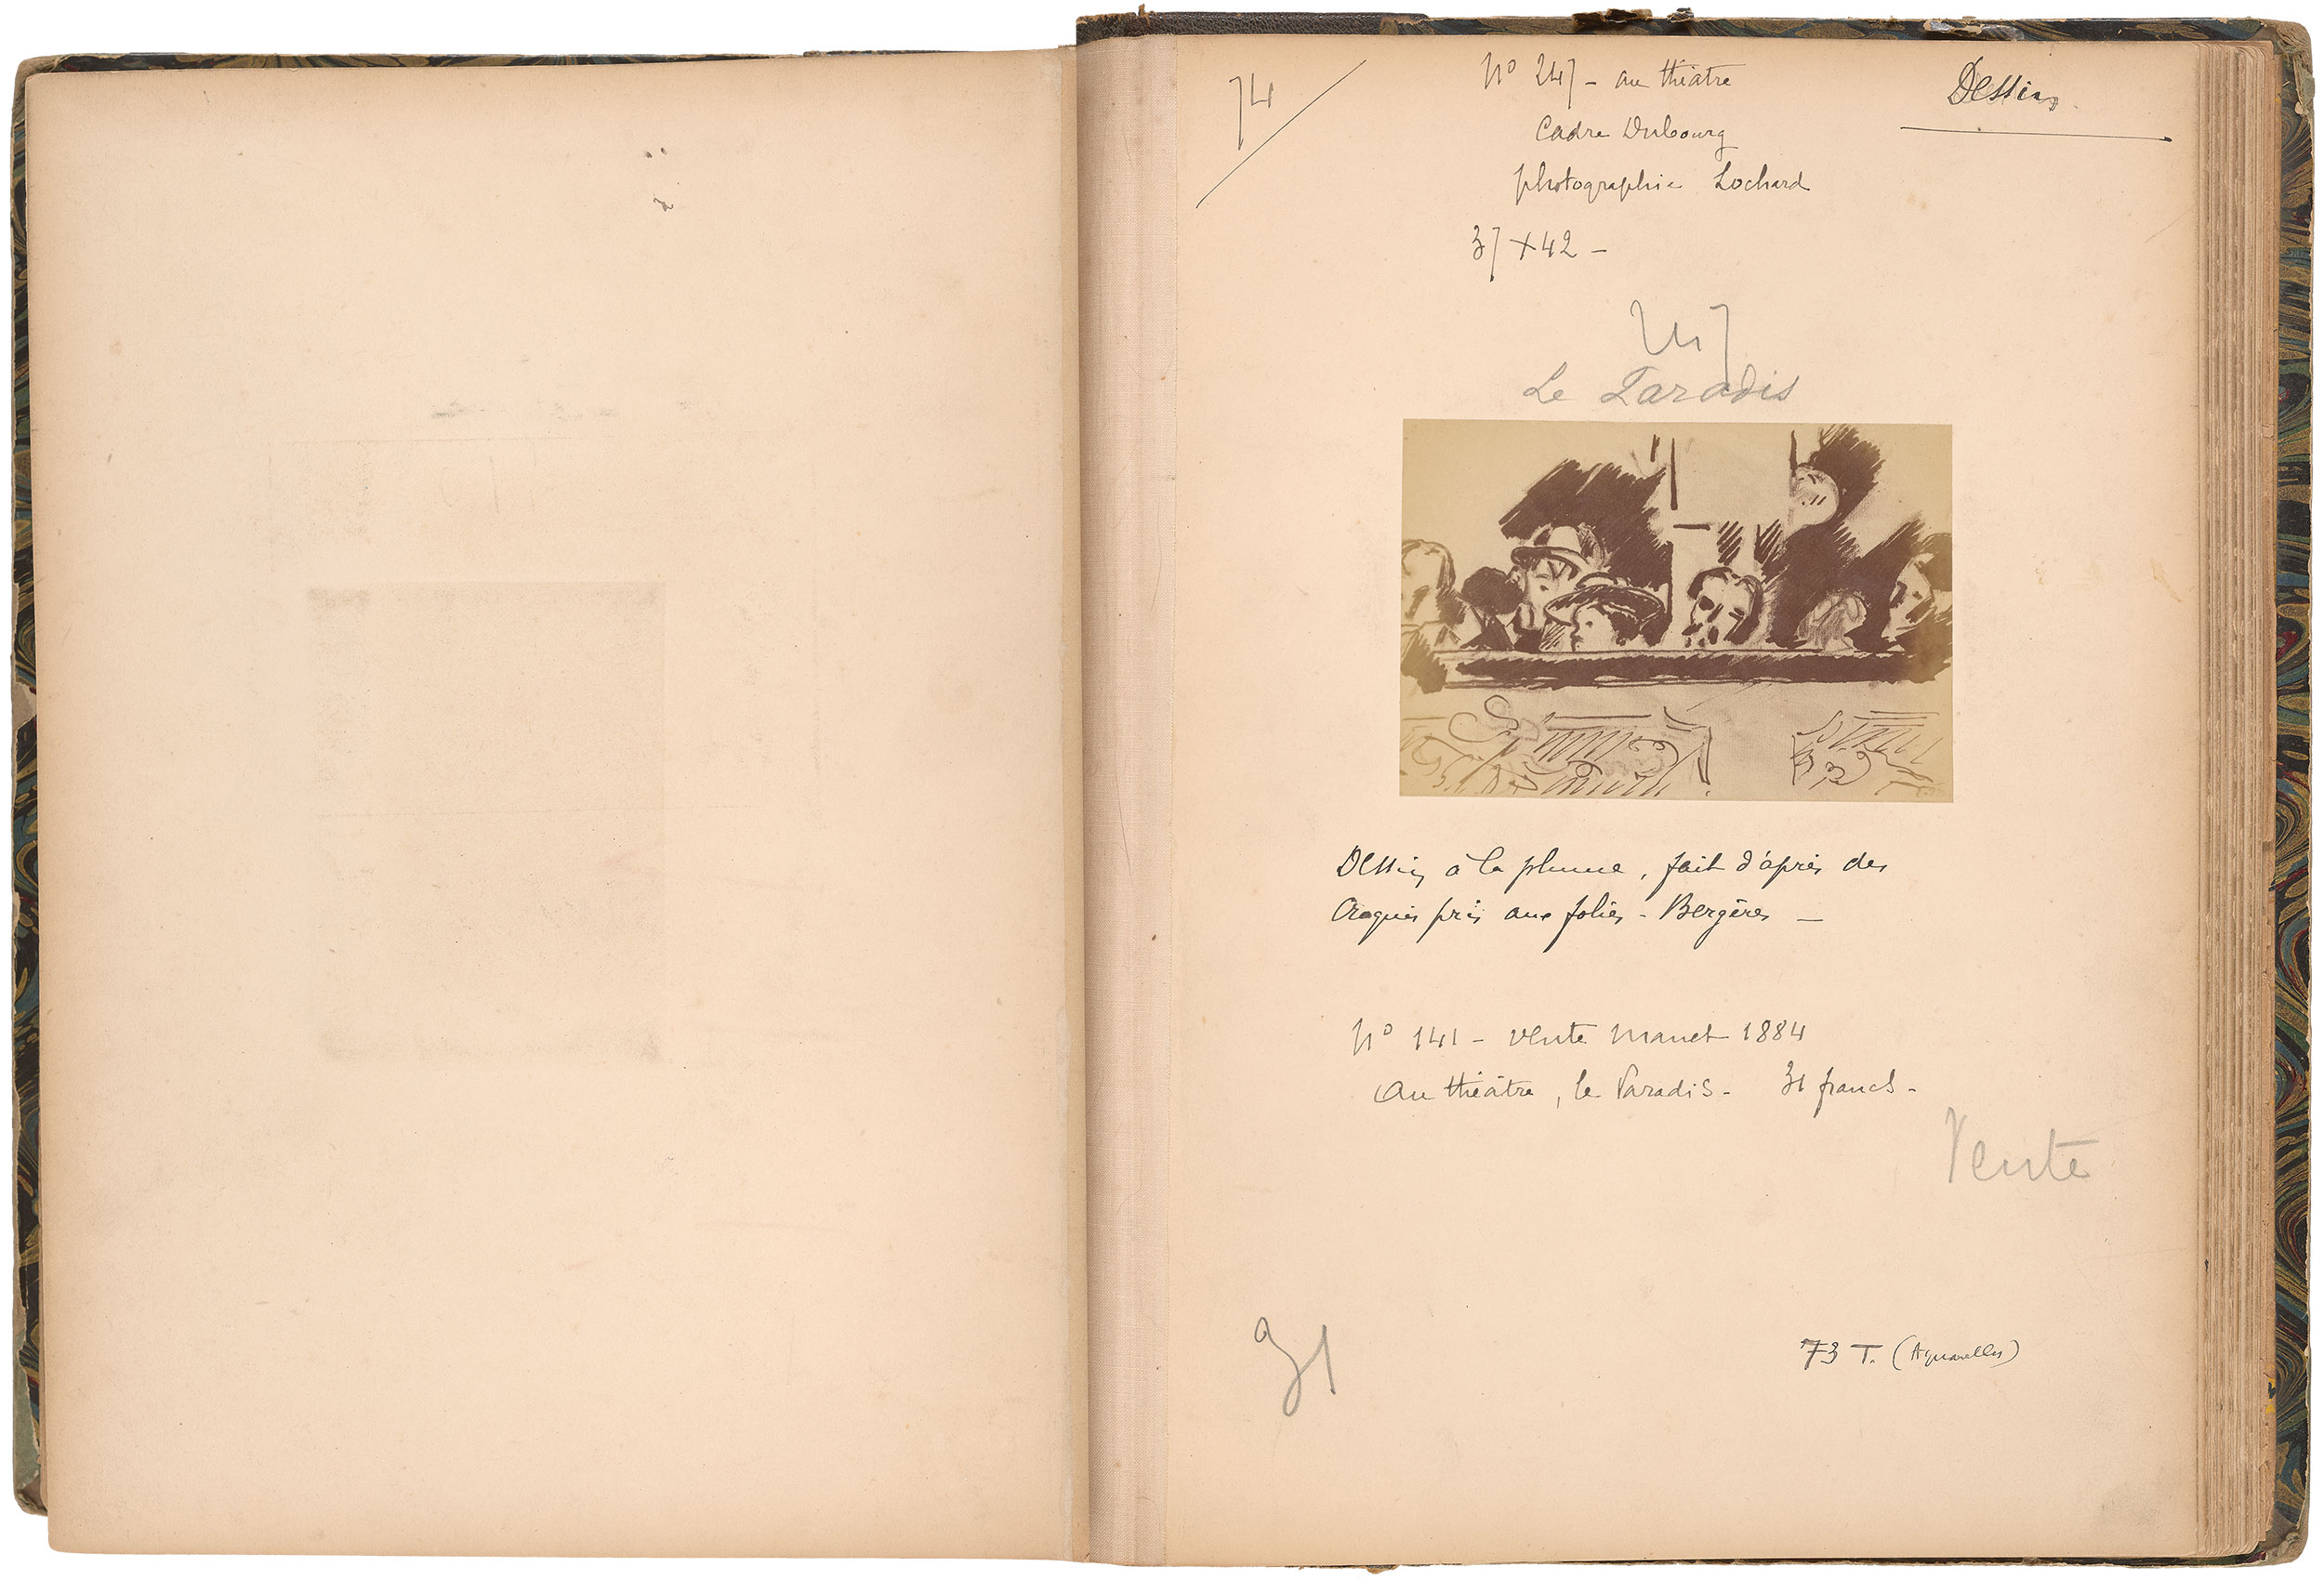 74
Dessins
N° 247 - au théâtre
Cadre Dubourg
photographie Lochard
37 x 42 -
247
Le Paradis
Dessin à la plume, fait d'après des
Croquis pris aux folies-Bergères -
N° 141 - vente Manet 1884
Au théâtre, le Paradis - 31 francs -
Vente
73 T. (Aquarelles)
91